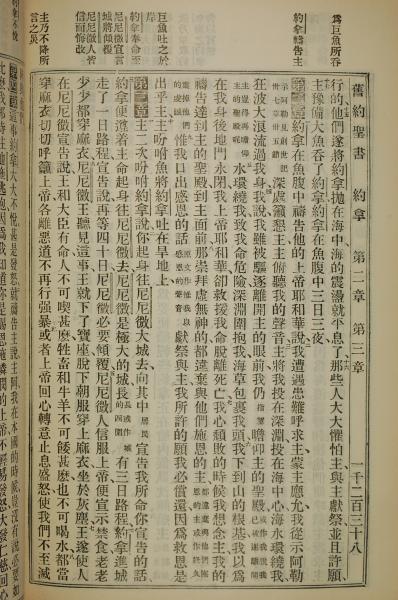 舊約聖書 約拿 第二章 第三章 一千二百三十八
爲巨魚所吞
約拿禱告主
巨魚吐之於岸
約拿奉命至
尼尼微宣言
城將傾覆
尼尼微人皆
信而悔改
主乃不降所
言之災
行的他們遂將約拿拋在海中海的震蕩就平息了那些人大大懼怕主與主獻祭並且許願
主豫備大魚吞了約拿約拿在魚腹中三日三夜
第二章約拿在魚腹中禱告他的上帝耶和華說我遭遇患難呼求主蒙主應允我從示阿勒
示阿勒見創世記卅七章卅五節深處籲懇主主俯聽我的聲音主將我投在深淵投在海中心海水環繞我
狂波大浪流過我身我說我雖被驅逐離開主的眼前我仍指望瞻仰主的聖殿
主的聖殿呢水環繞我致我命危險深淵圍抱我海草包裹我頭我下到山的根基我以為
在我身後地門永閉我上帝耶和華卻救援我命脫離死亡我心頹敗的時候我想念主我的
禱告達到主的聖殿到主面前那崇拜虛無神的都違棄與他們施恩的主
惟我口出感恩的話原文作惟我以感恩的聲音獻祭與主我所許的願我必償還因爲救恩是
出乎主主吩咐魚將約拿吐在旱地上
第三章主二次吩咐約拿說你起身往尼尼微大城去向其中居民宣告我所命你宣告的話
約拿便遵着主命起身往尼尼微去尼尼微是極大的城有三日路程約拿進城
走了一日路程宣告說再等四十日尼尼微必要傾覆尼尼微人信服上帝便宣示禁食老老
少少都穿麻衣尼尼微王聽見這事就下了寶座脫下朝服穿上麻衣坐於灰塵王遂使人
在尼尼微宣告說王和大臣有命人不可喫甚麼牲畜和牛羊不可餧甚麼也不可喝水都當
穿麻衣切切呼籲上帝各離惡道不再行强暴或者上帝回心轉意止息盛怒使我們不至滅